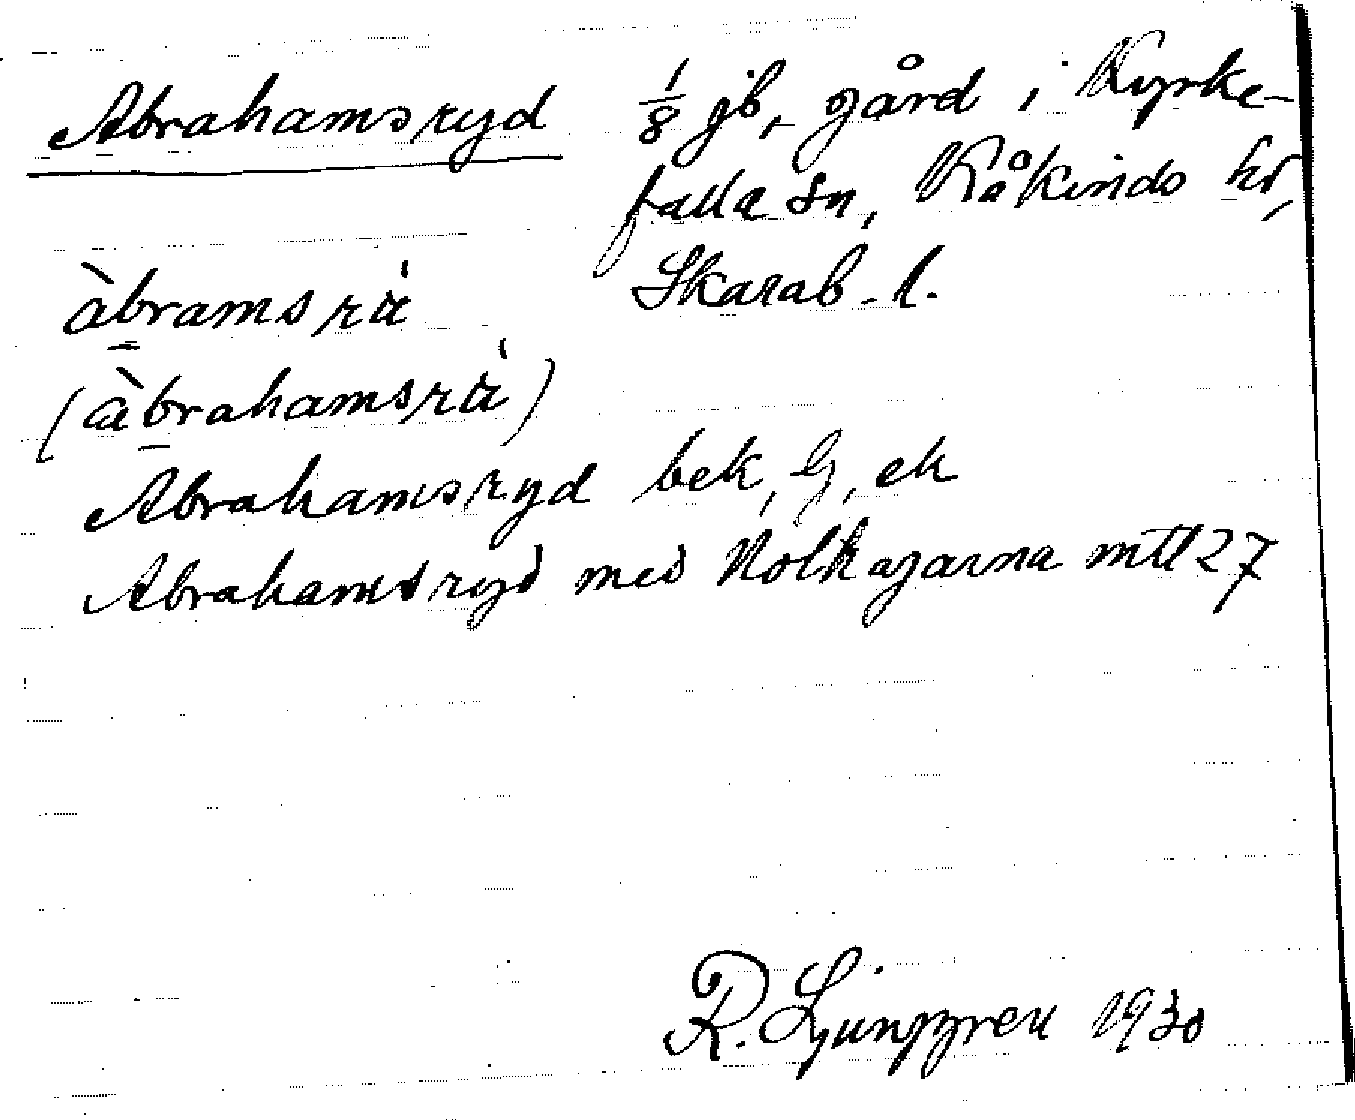 Abrahamsryd 1/8 jb, gård i Kyrke-
falla sn, Kåkinds hd,
Skarab. l.
àbramsrá̈
(àbrahamsrá̈)
Abrahamsryd bek, G, ek
Abrahamsryd med Kolhagarna mtl 27
R. Ljunggren 1930